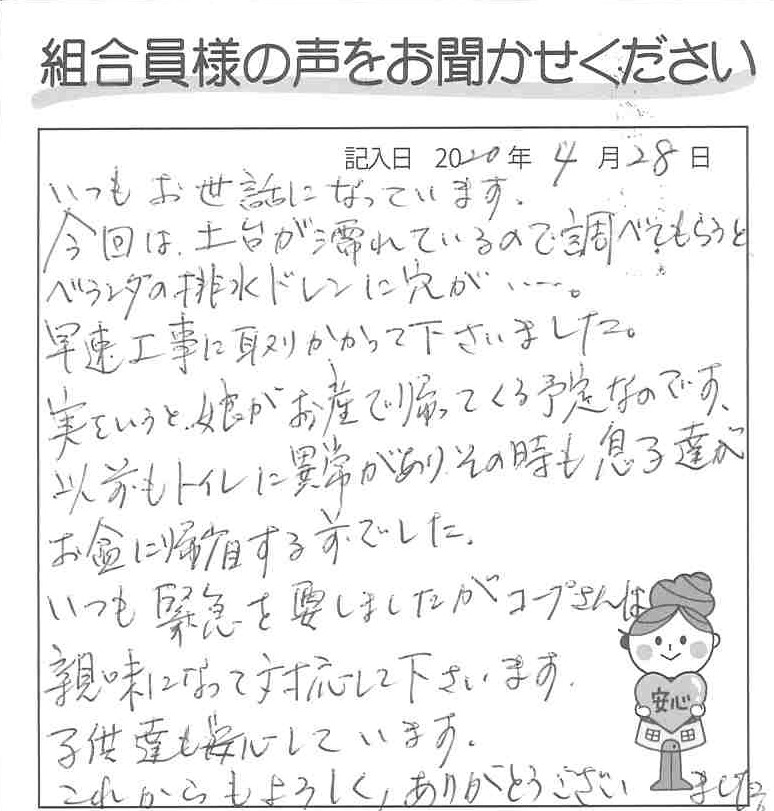 組合員様の声をお聞かせください
記入日 2020年 4月28日
いつもお世話になっています。
今回は、土台が濡れているので調べてもらうと
ベランダの排水ドレンに穴が……。
早速工事に取りかかって下さいました。
実をいうと、娘がお産で帰ってくる予定なのです、
以前もトイレに異常があり、その時も息子達が
お盆に帰省する前でした。
いつも緊急を要しましたがコープさんは
親味になって対応して下さいます。
子供達も安心しています。
これからもよろしく、ありがとうございました。
安心